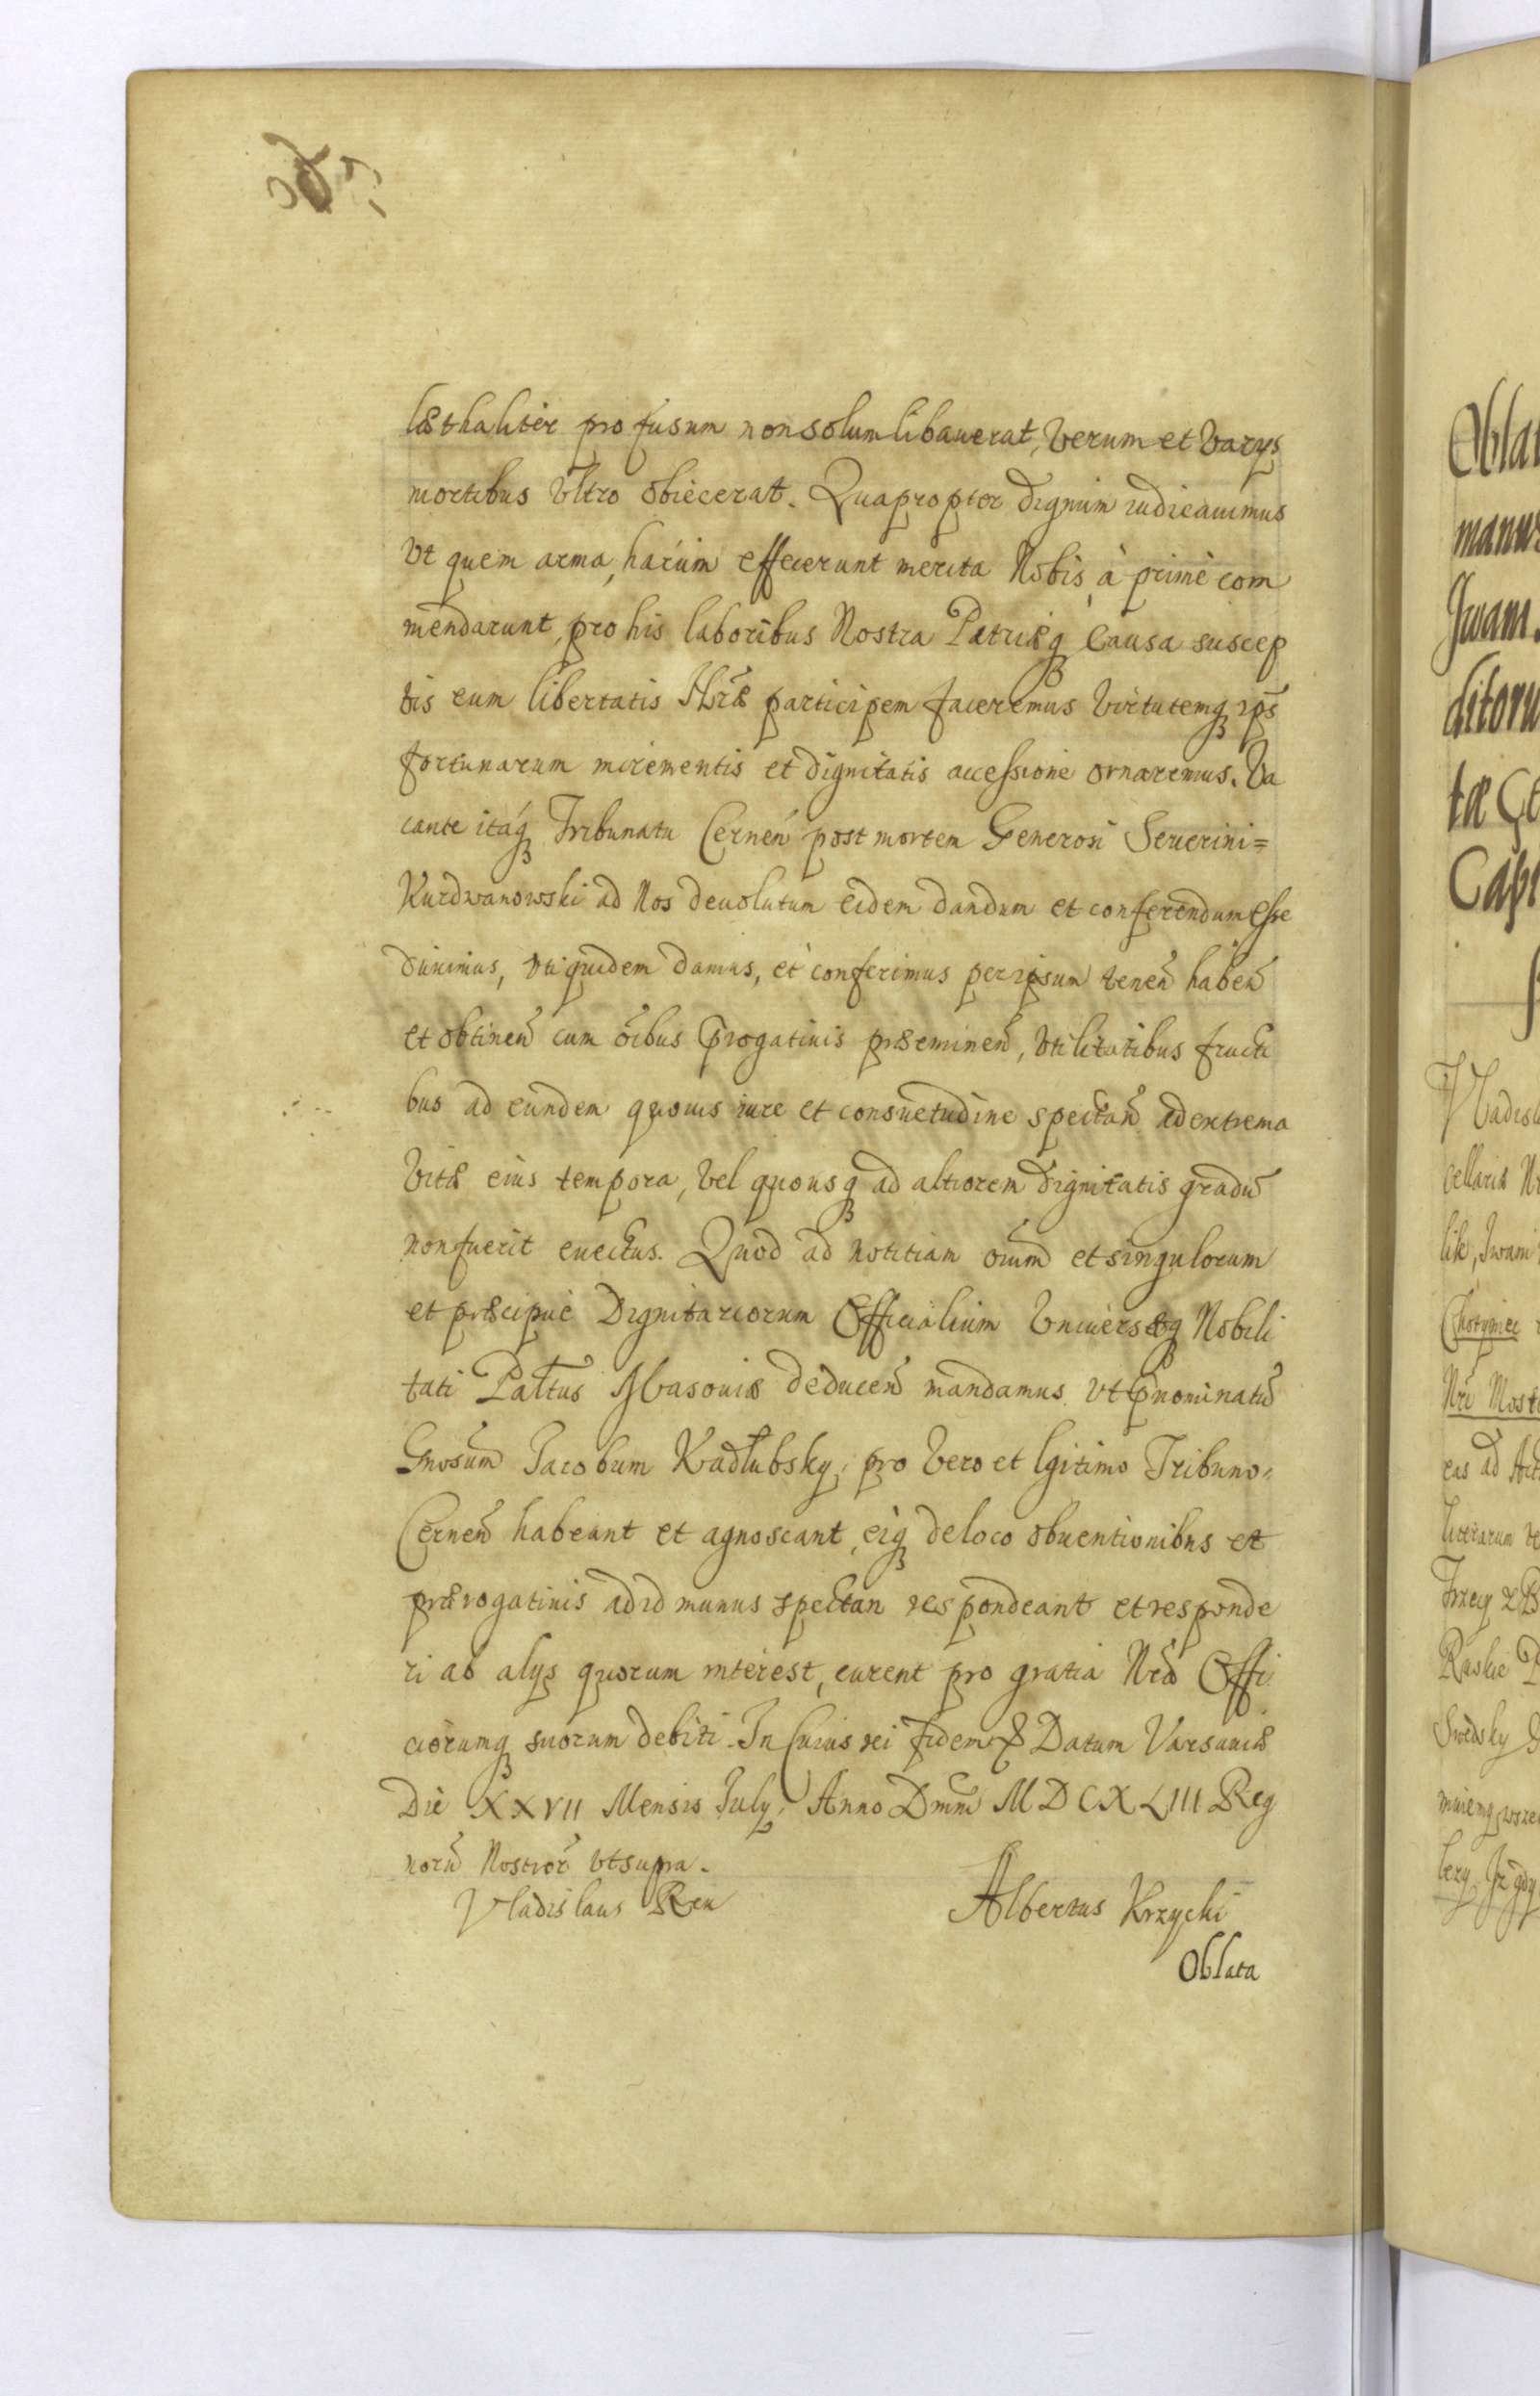 læthaliter profusum non solum libauerat, Verum et Varys
mortibus Vltro obiecerat. Quapropter dignum iudicauimus
Vt quem arma, harum effecerunt merita Nobis à primè com
mendarunt, pro his laboribus Nostra Patriæq Causa suscep
tis eum libertatis Nræ participem faceremus Virtutemq ips
fortunarum incrementis et dignitatis accessione ornaremus. Va
cante itáq Tribunatu Cernen post mortem Generosi Seuerini=
Kurdwanowski ad Nos deuolutum eidem dandum et conferendum esse
duximus, vti quidem damus, et conferimus per ipsum tenen haben
et obtinen cum oibus progatiuis præeminen, Vtilitatibus fructi
bus ad eundem quouis iure et consuetudine spectan ad extrema
Vitæ eius tempora, Vel quousq ad altiorem dignitatis gradu
non fuerit euectus. Quod ad notitiam oium et singulorum
et præcipue Dignitariorum Officialium Vniuersæq Nobili
tati Pałtus Masouiæ deducen mandamus Vt pnominatu
Gnosum Jacobum Kadłubsky, pro Vero et lgitimo Tribuno
Cernen habeant et agnoscant, eiq de loco obuentionibus et
prærogatiuis ad id munus spectan respondeant et responde
ri ab alys quorum interest, curent pro gratia Nra Offi
ciorumq suorum debiti. In Cuius rei fidem & Datum Varsauiæ
Die XXVII Mensis July, Anno Dmni MDCXLIII Reg
noru Nostror vt supra.
Vladislaus Rex
Albertus Krzycki
Oblata
Oblat
manus
Jwam
ditoru
tæ
Capt
Vladisl
cellaria
lik, Jwani
Chotyniec
Nri Most
eas ad Act
litterarum
Raskie
Swedsky